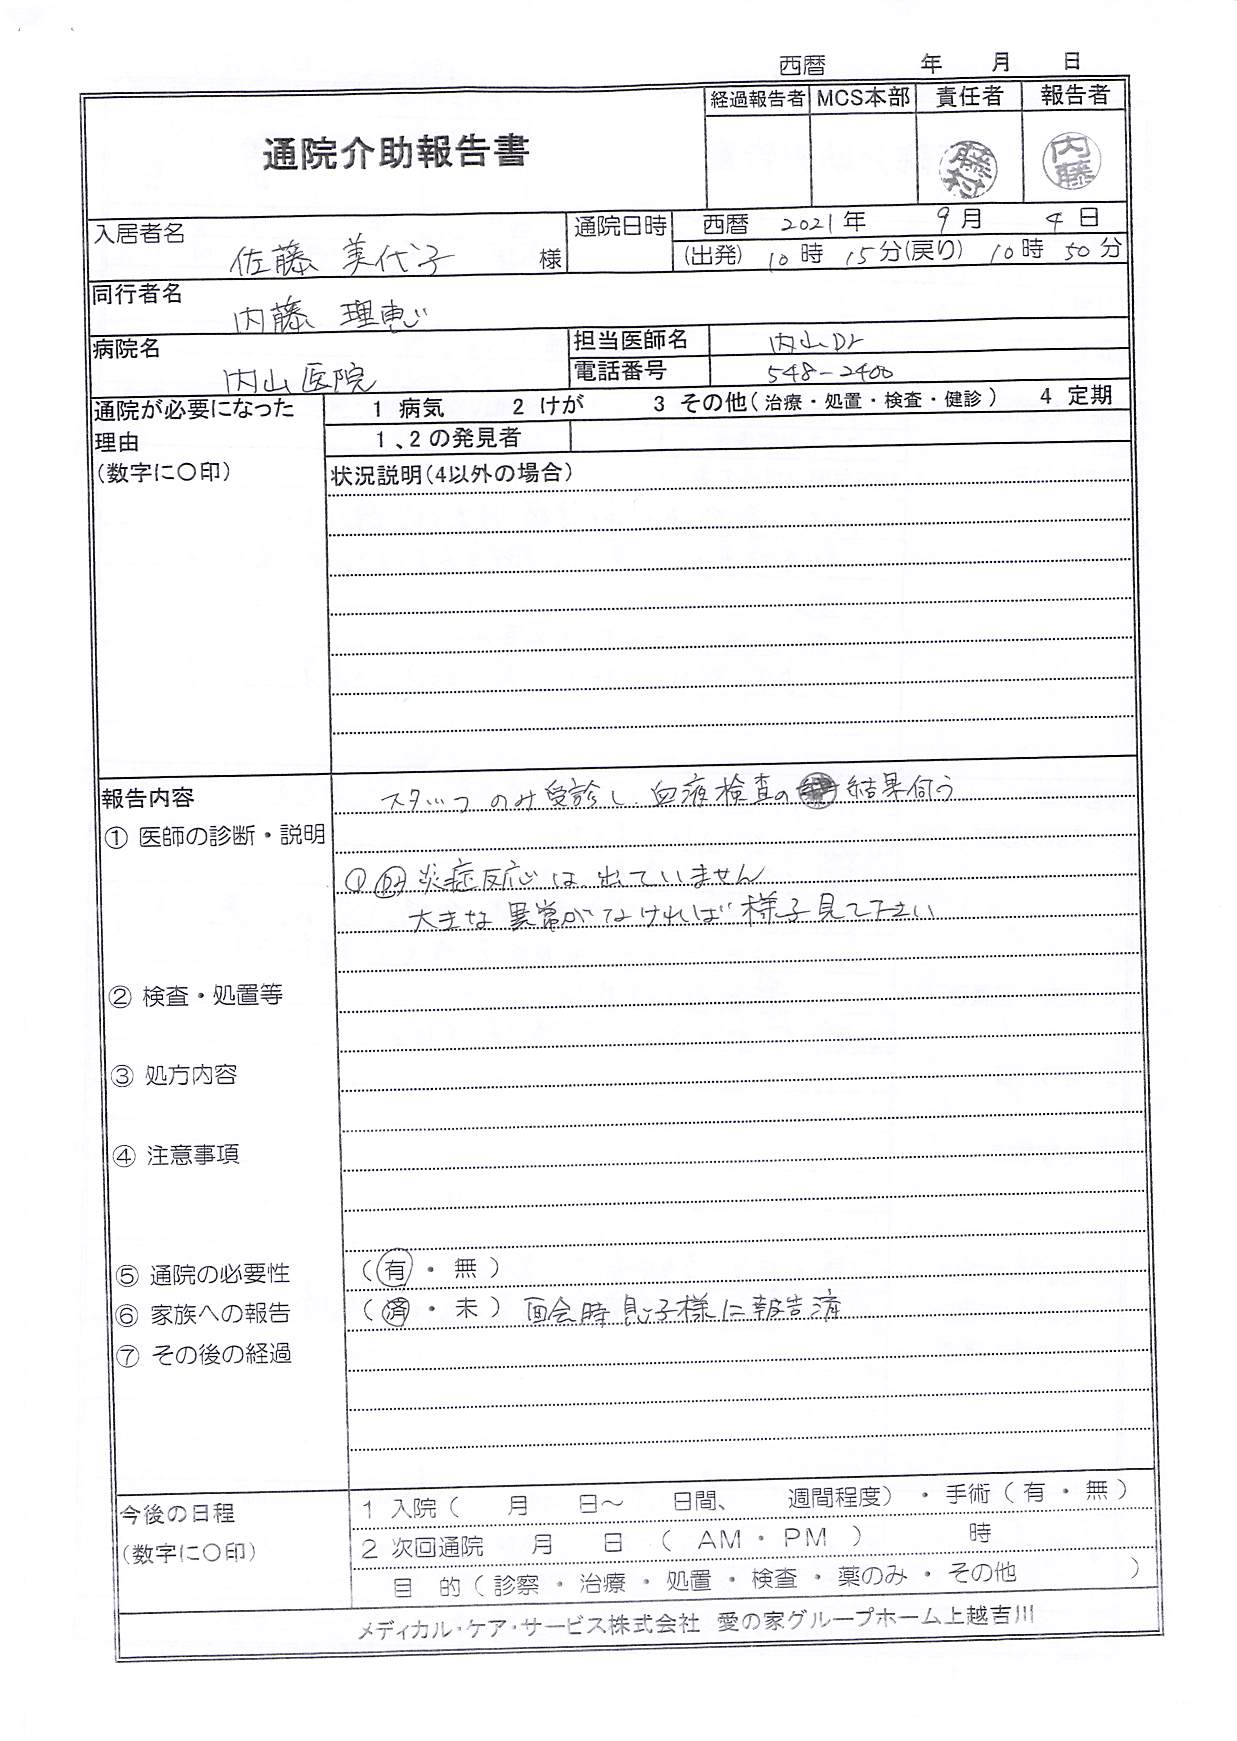 西暦 年 月 日
通院介助報告書
経過報告者 MCS本部 責任者 報告者
藤村 内藤
入居者名 佐藤 美代子 様
通院日時 西暦 2021年 9月 4日
(出発) 10時 15分(戻り) 10時 50分
同行者名 内藤 理恵
病院名 内山医院
担当医師名 内山Dr
電話番号 548-2400
通院が必要になった理由
(数字に〇印)
1 病気 2 けが 3 その他(治療・処置・検査・健診) 4 定期
1、2の発見者
状況説明(4以外の場合)
報告内容 スタッフのみ受診し、血液検査の 結果伺う
① 医師の診断・説明
① Dr 炎症反応は出ていません
大きな異常がなければ様子見て下さい
② 検査・処置等
③ 処方内容
④ 注意事項
⑤ 通院の必要性 (有・無)
⑥ 家族への報告 (済・未) 面会時 息子様に報告済
⑦ その後の経過
今後の日程
(数字に〇印)
1 入院( 月 日～ 日間、 週間程度)・手術(有・無)
2 次回通院 月 日 ( AM・PM ) 時
目 的(診察・治療・処置・検査・薬のみ・その他 )
メディカル・ケア・サービス株式会社 愛の家グループホーム上越吉川